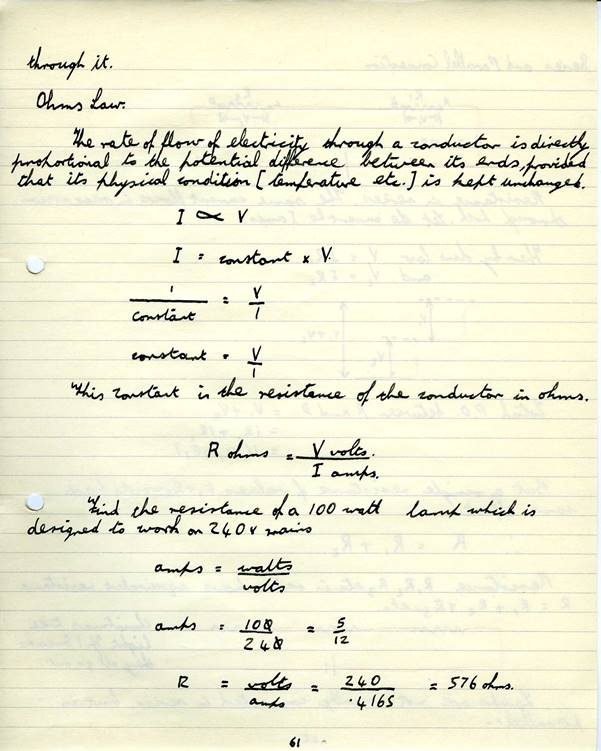 through it.
Ohms Law.
The rate of flow of electricity through a conductor is directly
proportional to the potential difference between its ends, provided
that its physical condition [temperature etc.] is kept unchanged.
I ∝ V
I = constant × V.
1/constant = V/I
constant = V/I
This constant is the resistance of the conductor in ohms.
R ohms = V volts. / I amps.
Find the resistance of a 100 watt lamp which is
designed to work on 240v mains
amps = watts/volts
amps = 100/240 = 5/12
R = volts/amps = 240/.4165 = 576 ohms.
61